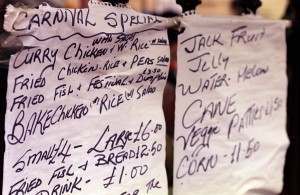 CARNIVAL SPECIAL
WITH SALAD
CURRY CHICKEN W. RICE & SALAD
FRIED CHICKEN-RICE & PEAS SALAD
FRIED FISH & FESTIVAL &
BAKE CHICKEN RICE & SALAD
SMALL 4 - LARGE £6.00
FRIED FISH & BREAD £2.50
DRINK - £1.00
FOR THE
JACK FRUIT
JELLY
WATER MELON
CANE
VEGGE PATTIE £1.50
CORN - £1.50